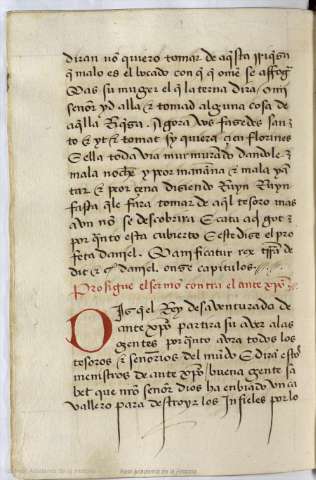 diran no quiero tomar de aq̃sta riq̃sa
q̃ malo es el bocado con q̃ ome se affoga
Mas su muger el q̃ la terna dira o mi
señor yd alla ⁊ tomad alguna cosa de
aq̃lla Agora vos fagedes san
to ⁊ yt ⁊ tomat sy quiera çien florines
E ella toda via murmurãdo dandole
mala noche ⁊ peor mañana ⁊ mala yan
tar ⁊ peor çena disiendo Ruyn Ruyn
fasta q̃le fara tomar de aq̃l tesoro mas
avn no se descobrira E cata aq̃ got ⁊
por q̃nto esta cubierto E este dise el pro
feta daniel. Manificatur rex
die ⁊ daniel onse capitulos
Prosigue el sermõ contra el ante xp̃o
Disq̃ el Rey desaventurada de
ante xp̃o partira su aver alas
gentes por q̃nto avra todos los
tesoros ⁊ señorios del mũdo E dirã estos
menistros de ante xp̃o buena gente sa
bet que nr̃o señor dios ha enbiado vn ca
vallero para destroyr los infieles por lo
Real academia de la Historia